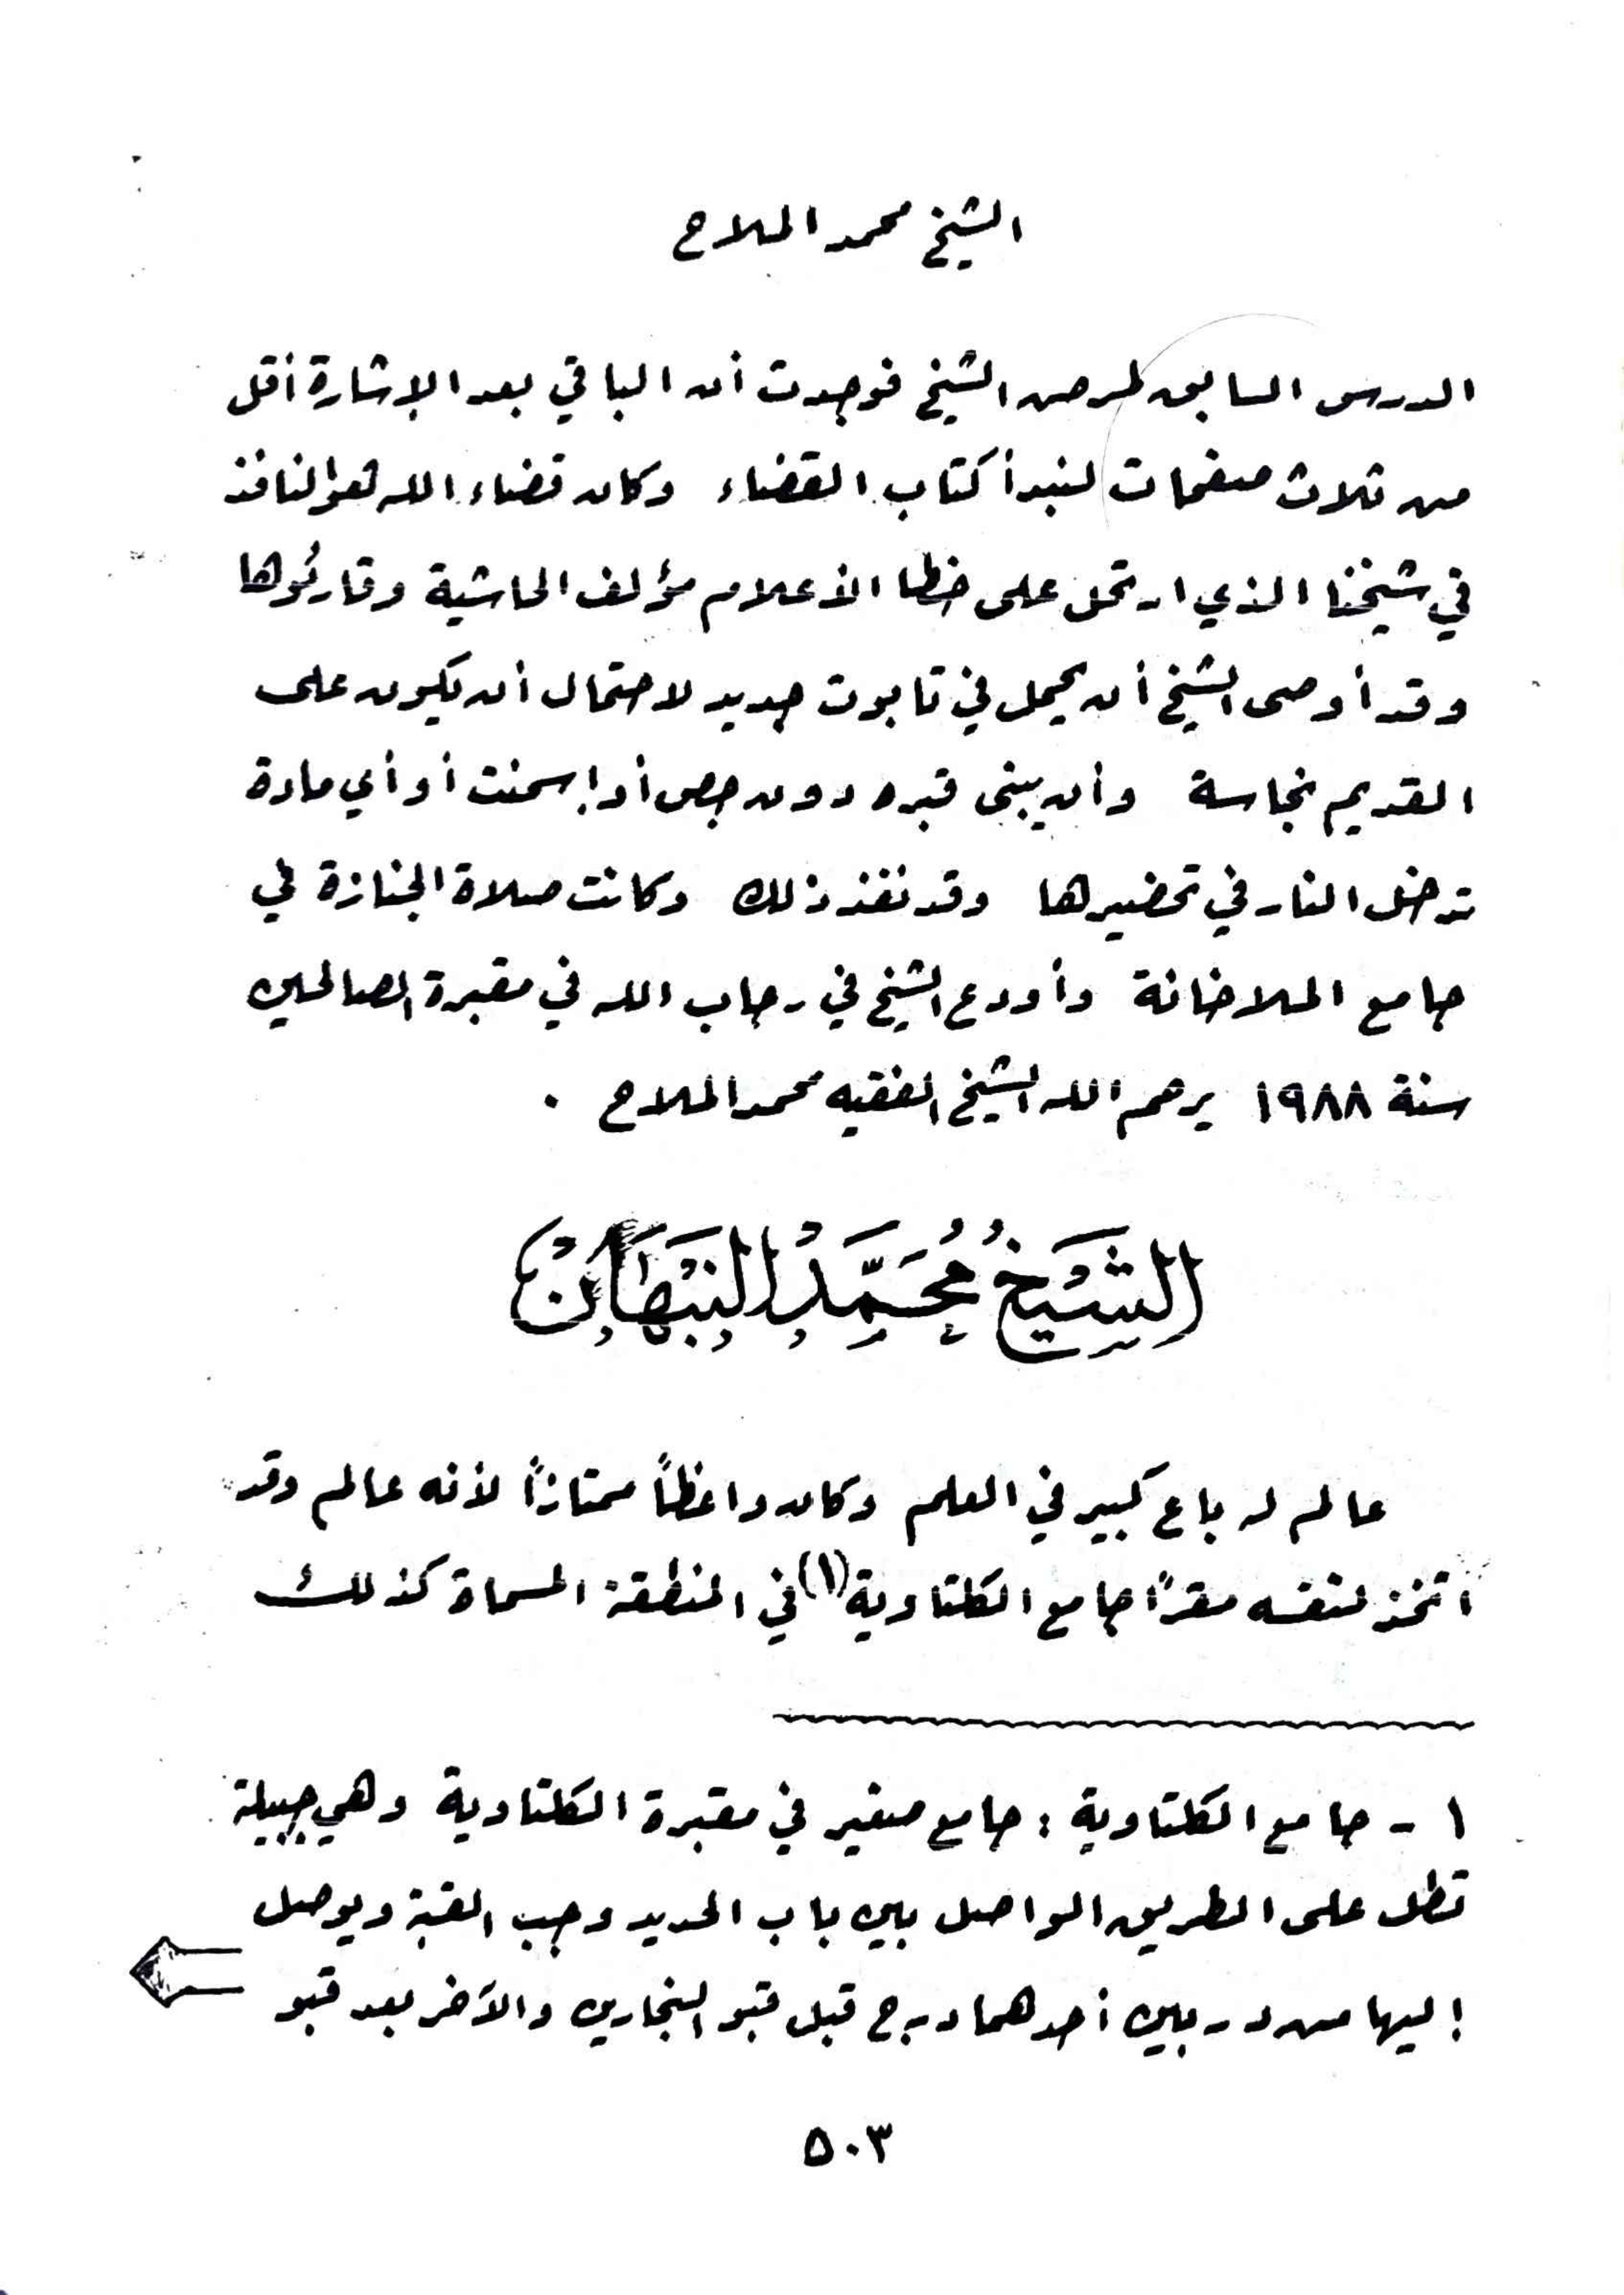 الشيخ محمد الملاح
الدرس السابق لمرض الشيخ فوجدت أن الباقي بعد الإشارة أقل
من ثلاث صفحات لنبدأ كتاب القضاء وكان قضاء الله هو النافذ
في شيخنا الذي ارتحل على خطا الأعلام مؤلف الحاشية وقارئوها
وقد أوصى الشيخ أن يحمل في تابوت جديد لاحتمال أن يكون على
القديم نجاسة وأن يبنى قبره دون جص أو إسمنت أو أي مادة
تدخل النار في تحضيرها وقد نفذ ذلك وكانت صلاة الجنازة في
جامع الملاخانة وأودع الشيخ في رحاب الله في مقبرة الصالحين
سنة ١٩٨٨ يرحم الله الشيخ الفقيه محمد الملاح .
الشَّيْخُ مُحَمَّدُ النَّبْهَانْ
عالم له باع كبير في العلم وكان واعظاً ممتازاً لأنه عالم وقد
اتخذ لنفسه مقرًا جامع الكلتاوية (١) في المنطقة المسماة كذلك
١ - جامع الكلتاوية : جامع صغير في مقبرة الكلتاوية وهي جبيلة
تطل على الطريق الواصل بين باب الحديد وجب القبة ويوصل
إليها من دربين أحدهما درج قبل قبو النجارين والآخر بعد قبو
٥٠٣